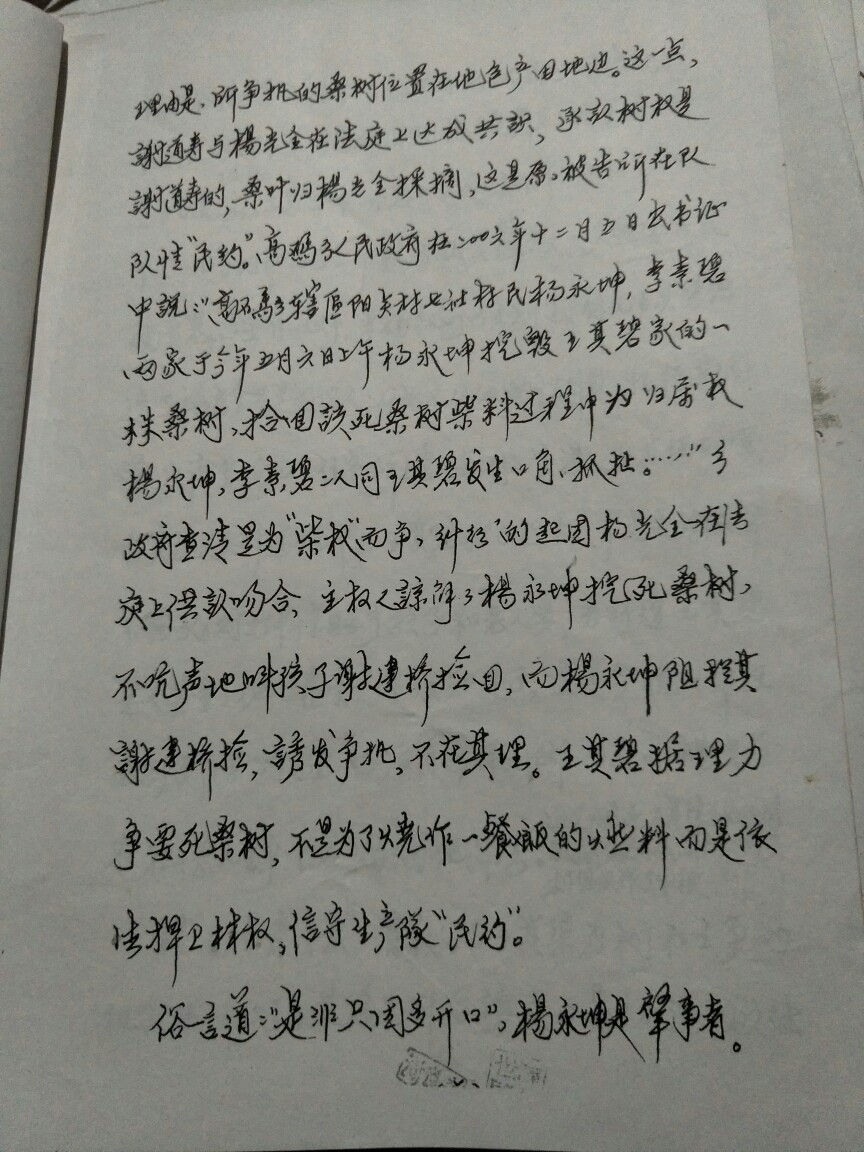 理由是:所争执的桑树位置在他包产田地边。这一点,
謝道寿与楊光全在法庭上达成共识,承認树权是
謝道寿的,桑叶归楊光全採摘,这是原、被告所在队
队性"民约"。高碼乡人民政府在二00六年十二月五日出书证
中説:"高碼乡辖区阳关村七社村民杨永坤,李素碧
两家于今年五月六日上午杨永坤挖毁王其碧家的一
株桑树,拾回該死桑树柴料过程中为归属权
楊永坤,李素碧二人同王其碧发生口角、抓扯。……"乡
政府查清是为"柴权"而争,纠纷的起因杨光全在法
庭上供認吻合,主权人諒解了楊永坤挖死桑树,
不吭声地叫孩子谢建桥捡回,而楊永坤阻拦其
謝建桥捡,誘发争执,不在其理。王其碧据理力
争要死桑树,不是为了烧作一餐飯的燃料而是依
法捍卫林权,信守生产隊"民约"。
俗言道:"是非只因多开口",楊永坤是肇事者。